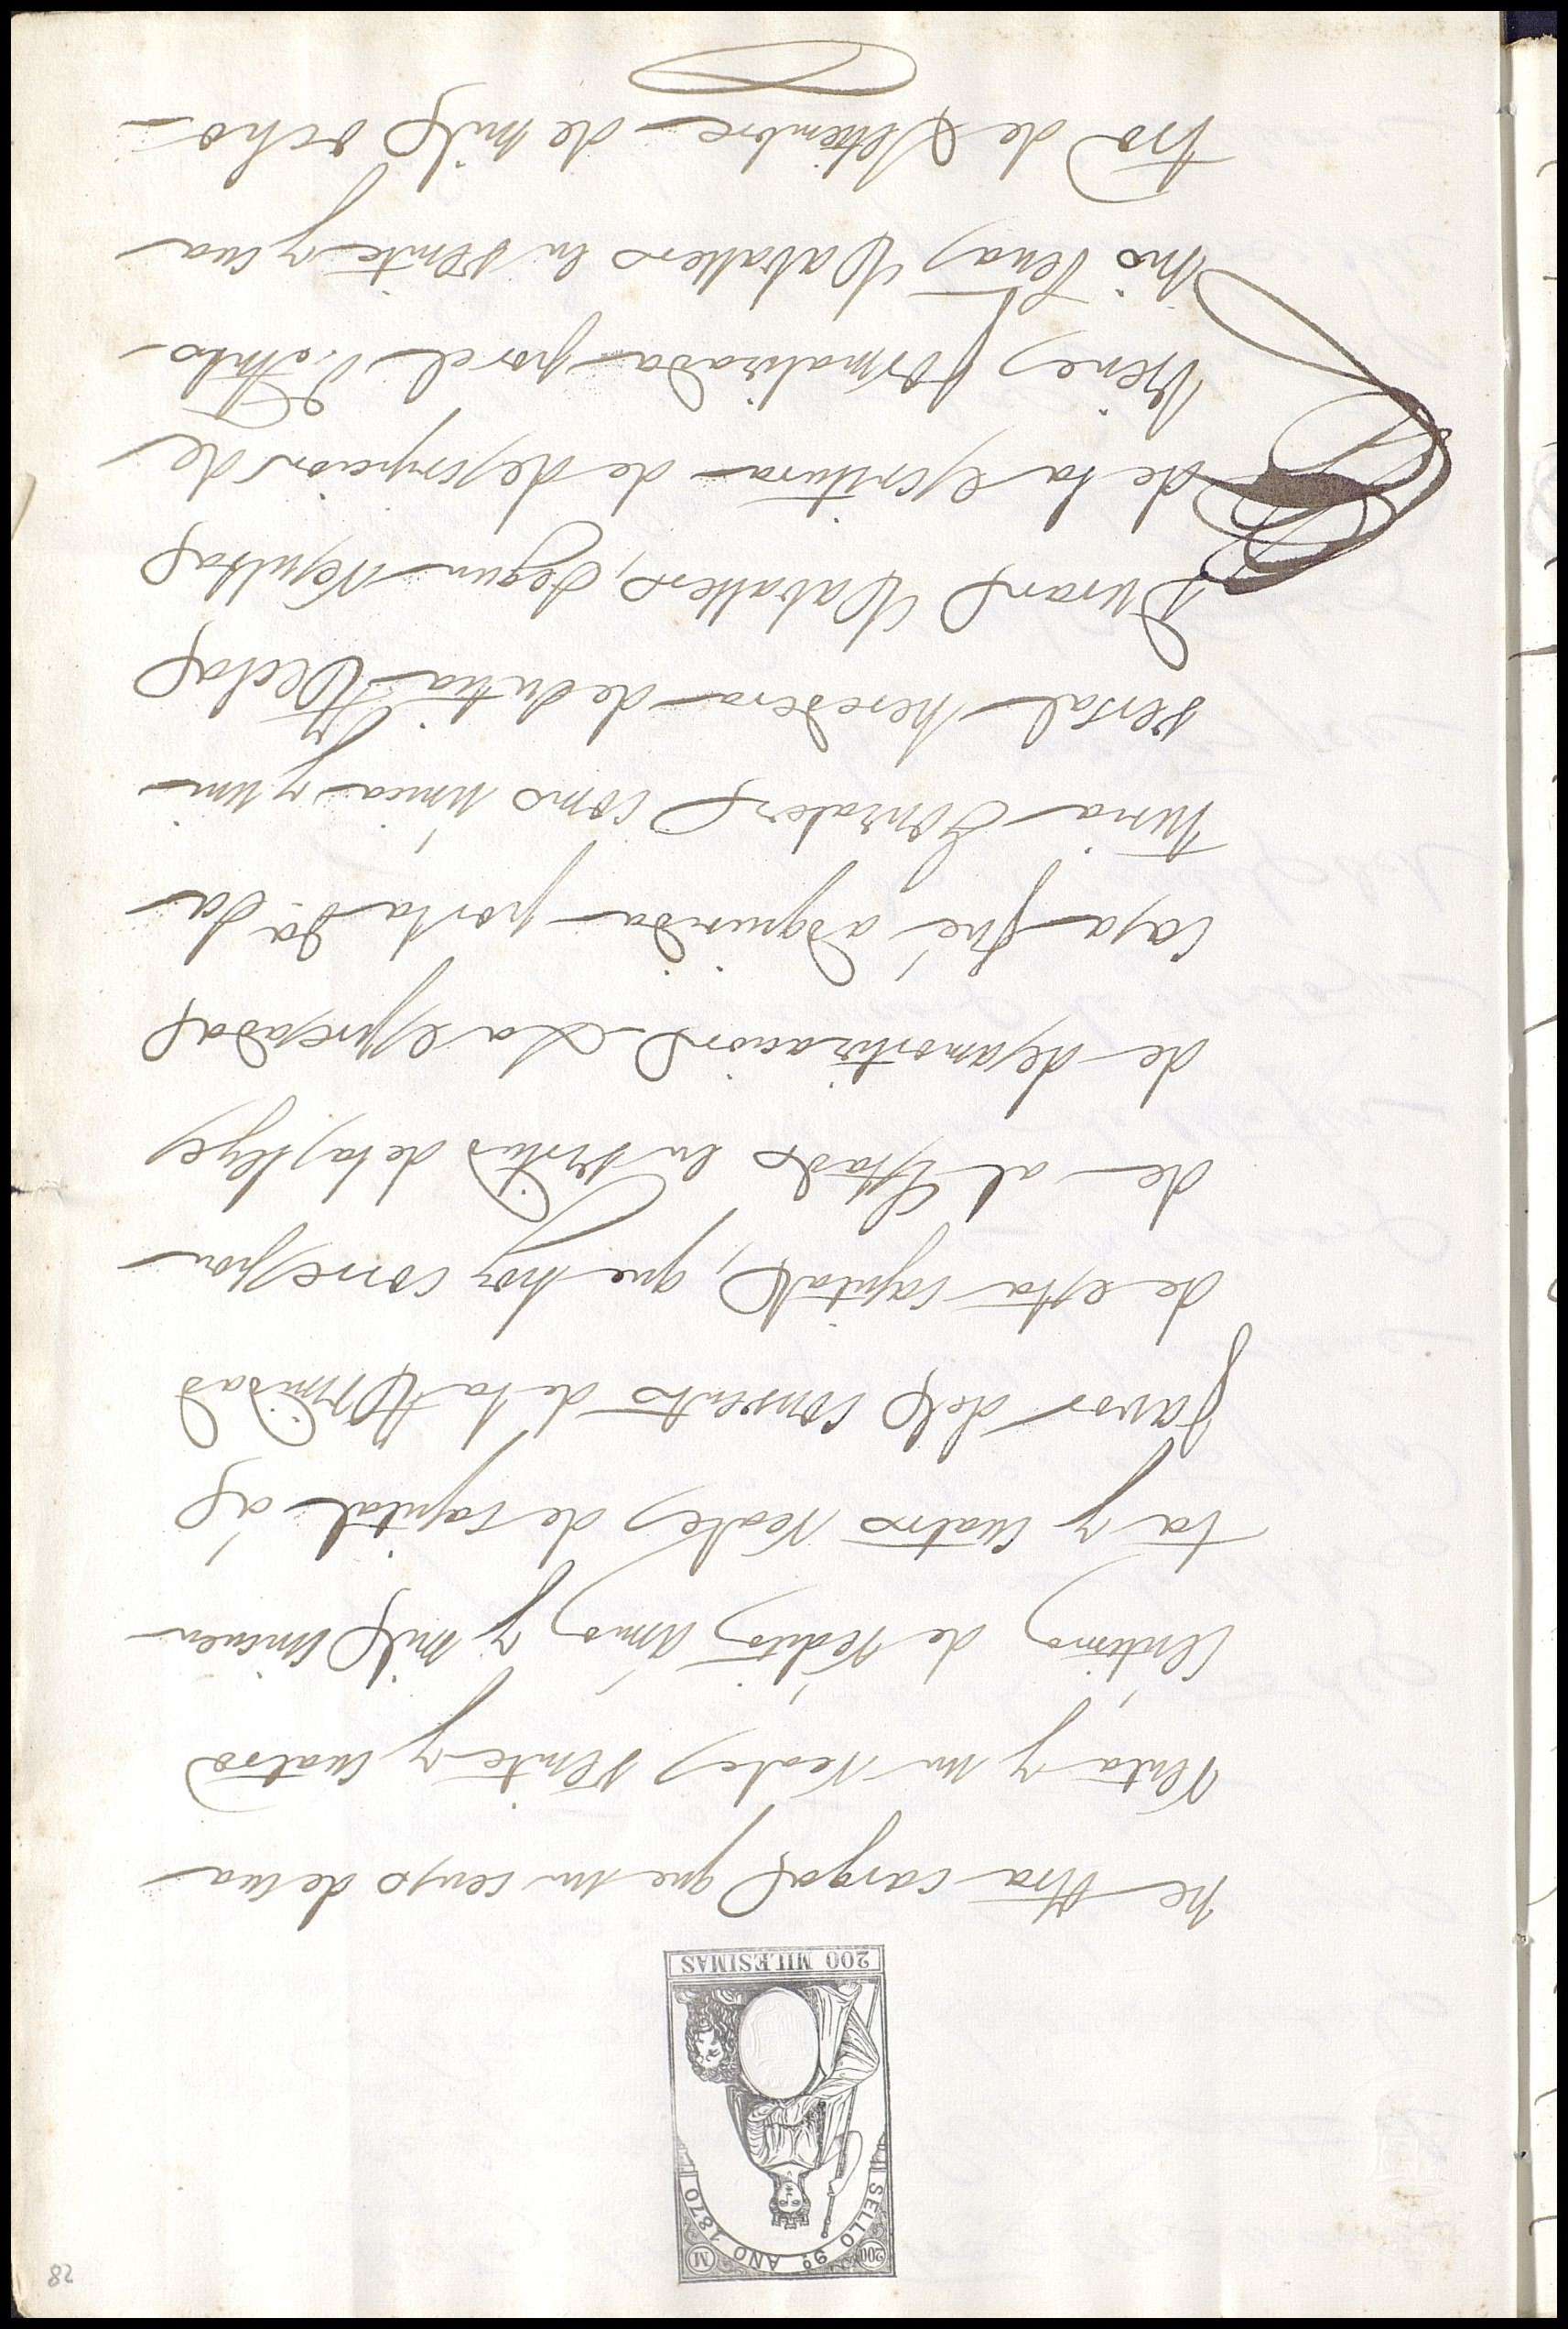 28
SELLO 9º AÑO 1870
200 M
200 MILESIMAS
ne otra carga que un censo de cua
renta y un reales veinte y cuatro
centimos de réditos ánnos y mil
ta y cuatro reales de capital á
favor del convento de la Trinidad
de esta capital, que hoy correspon
de al Estado en virtud de las leyes
de desamortizacion. La espresada
casa fué adquirida por la Dª. Sa
turia Gonzalez como única y uni
versal heredera de su tia
Duran Caballero, segun resulta
de la escritura de descripcion de
bienes formalizada por el D. Anto
nio Pena Caballero en veinte y cua
tro de Setiembre de mil ocho